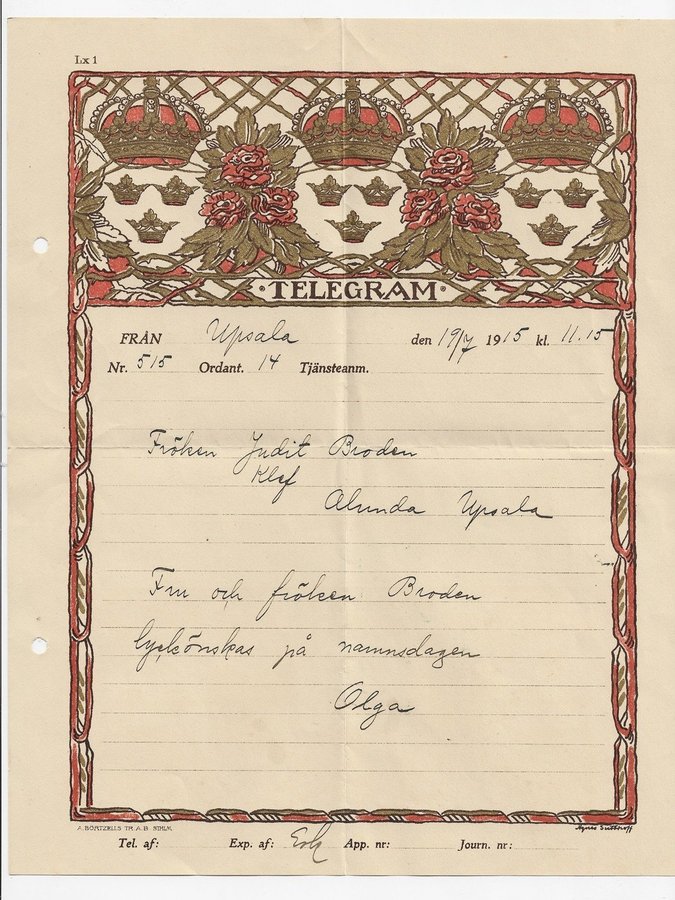 Lx 1
· TELEGRAM ·
FRÅN Upsala den 19/7 1915 kl. 11.15
Nr. 515 Ordant. 14 Tjänsteanm.
Fröken Judit Broden
Klef
Alunda Upsala
Fru och fröken Broden
lyckönskas på namnsdagen
Olga
A. BÖRTZELLS TR. A.B. STHLM.
Tel. af: Exp. af: App. nr: Journ. nr: